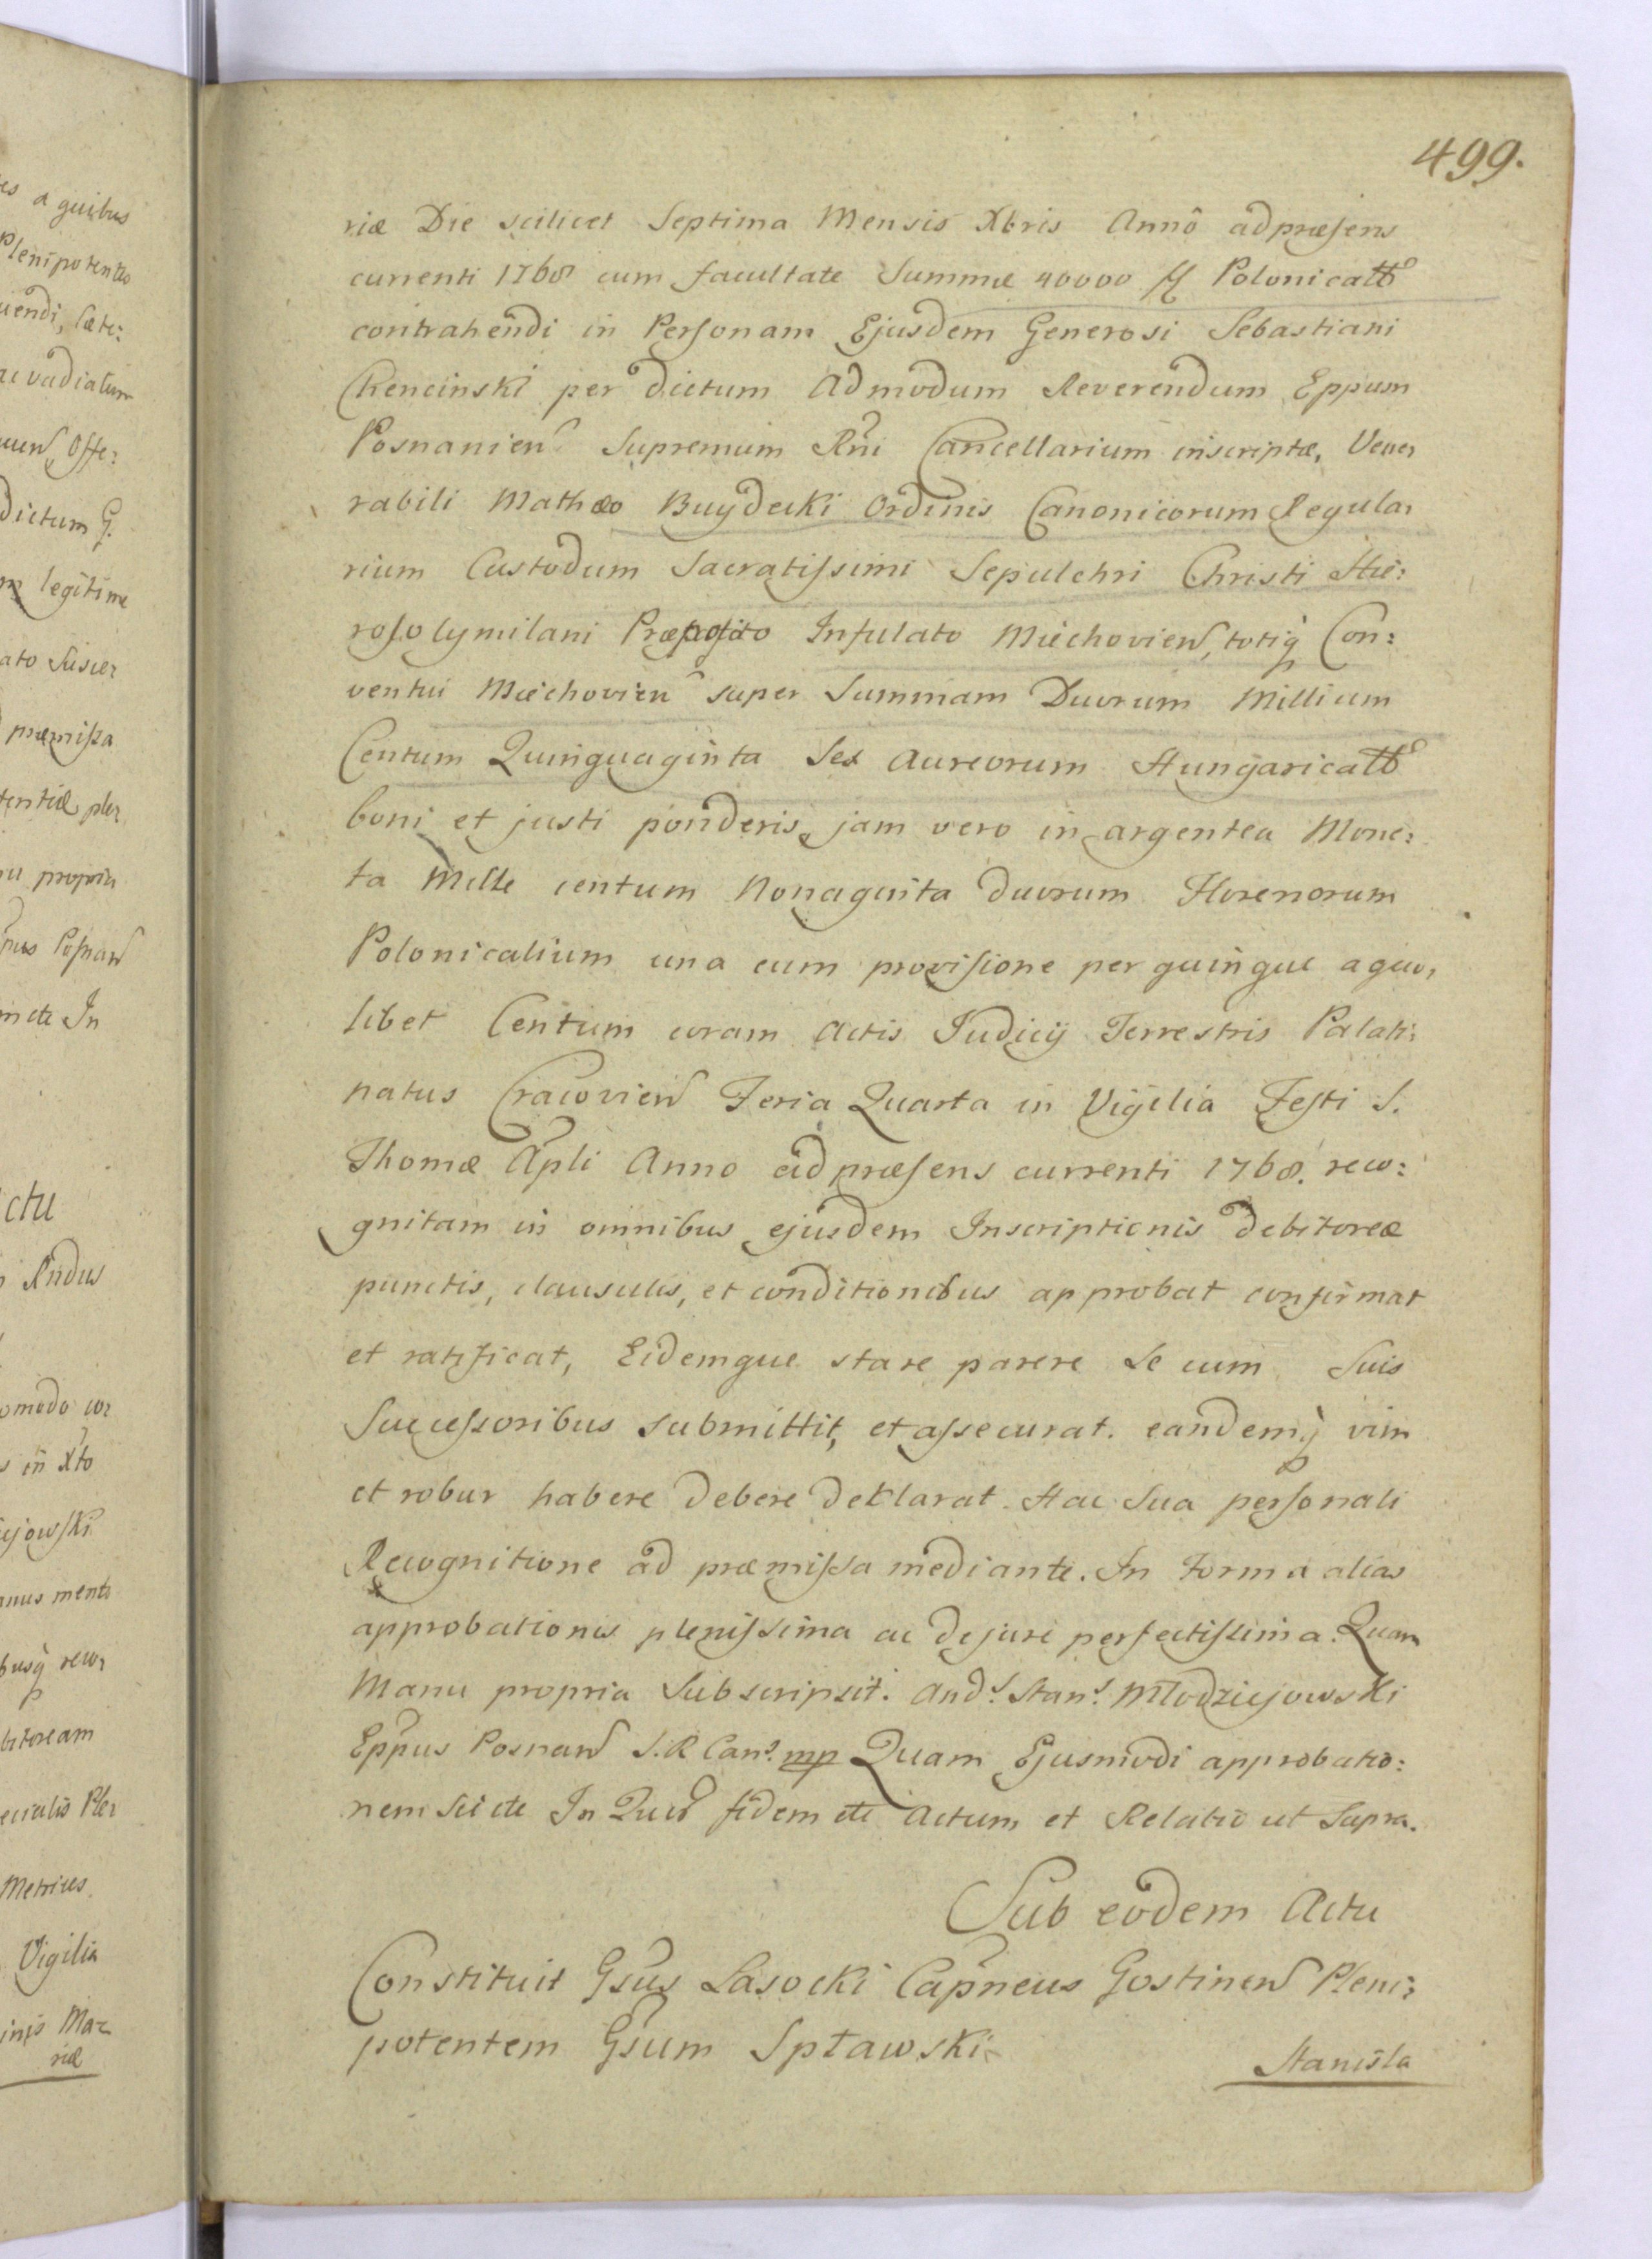 499.
riæ Die scilicet Septima Mensis Xbris Annô ad præsens
currenti 1768 cum facultate Summæ 40000 fl Polonicall
contrahendi in Personam Ejusdem Generosi Sebastiani
Chencinski per dictum Admodum Reverendum Eppum
Posnanien Supremum Rñi Cancellarium inscriptæ, Vene,
rabili Mathæo Buydecki Ordinis Canonicorum Regula,
rium Custodum Sacratissimi Sepulchri Christi Hie:
rosolymitani Præposito Infulato Miechovien, totiq Con:
ventui Miechovien super Summam Duorum Millium
Centum Quinquaginta Sex Aureorum Hungaricall
boni et justi ponderis, jam vero in argentea Mone:
ta Mille centum Nonaginta duorum Florenorum
Polonicalium una cum provisione per quinque a quo,
libet Centum coram Actis Judicij Terrestris Palati:
natus Cracovien Feria Quarta in Vigilia Festi S.
Thomæ Apli Anno ad præsens currenti 1768. reco:
gnitam in omnibus ejusdem Inscriptionis debitoreæ
punctis, clausulis, et conditionibus approbat confirmat
et ratificat, Eidemque stare parere se cum Suis
Successoribus submittit, et assecurat. eandemq vim
et robur habere debere deklarat. Hac Sua personali
Recognitione ad præmissa mediante. In Forma alias
approbationis plenissima ac de jure perfectissima. Quam
Manu propria Subscripsit. And. Stan. Młodziejowski
Eppus Posnan S. R. Can. mp Quam Ejusmodi approbatio:
nem Sui etc In Quor fidem etc Actum et Relatio ut Supra.
Sub eodem Actu
Constituit Gsus Lasocki Capneus Gostinen Pleni:
potentem Gsum Spławski
Stanisla
a quibus
Plenipotentes
vadiatum
dictum G.
legitime
præmissa
propria
Posnan
etc In
ctu
Rndus
in Xto
Metrices
Vigilia
Ma
riæ